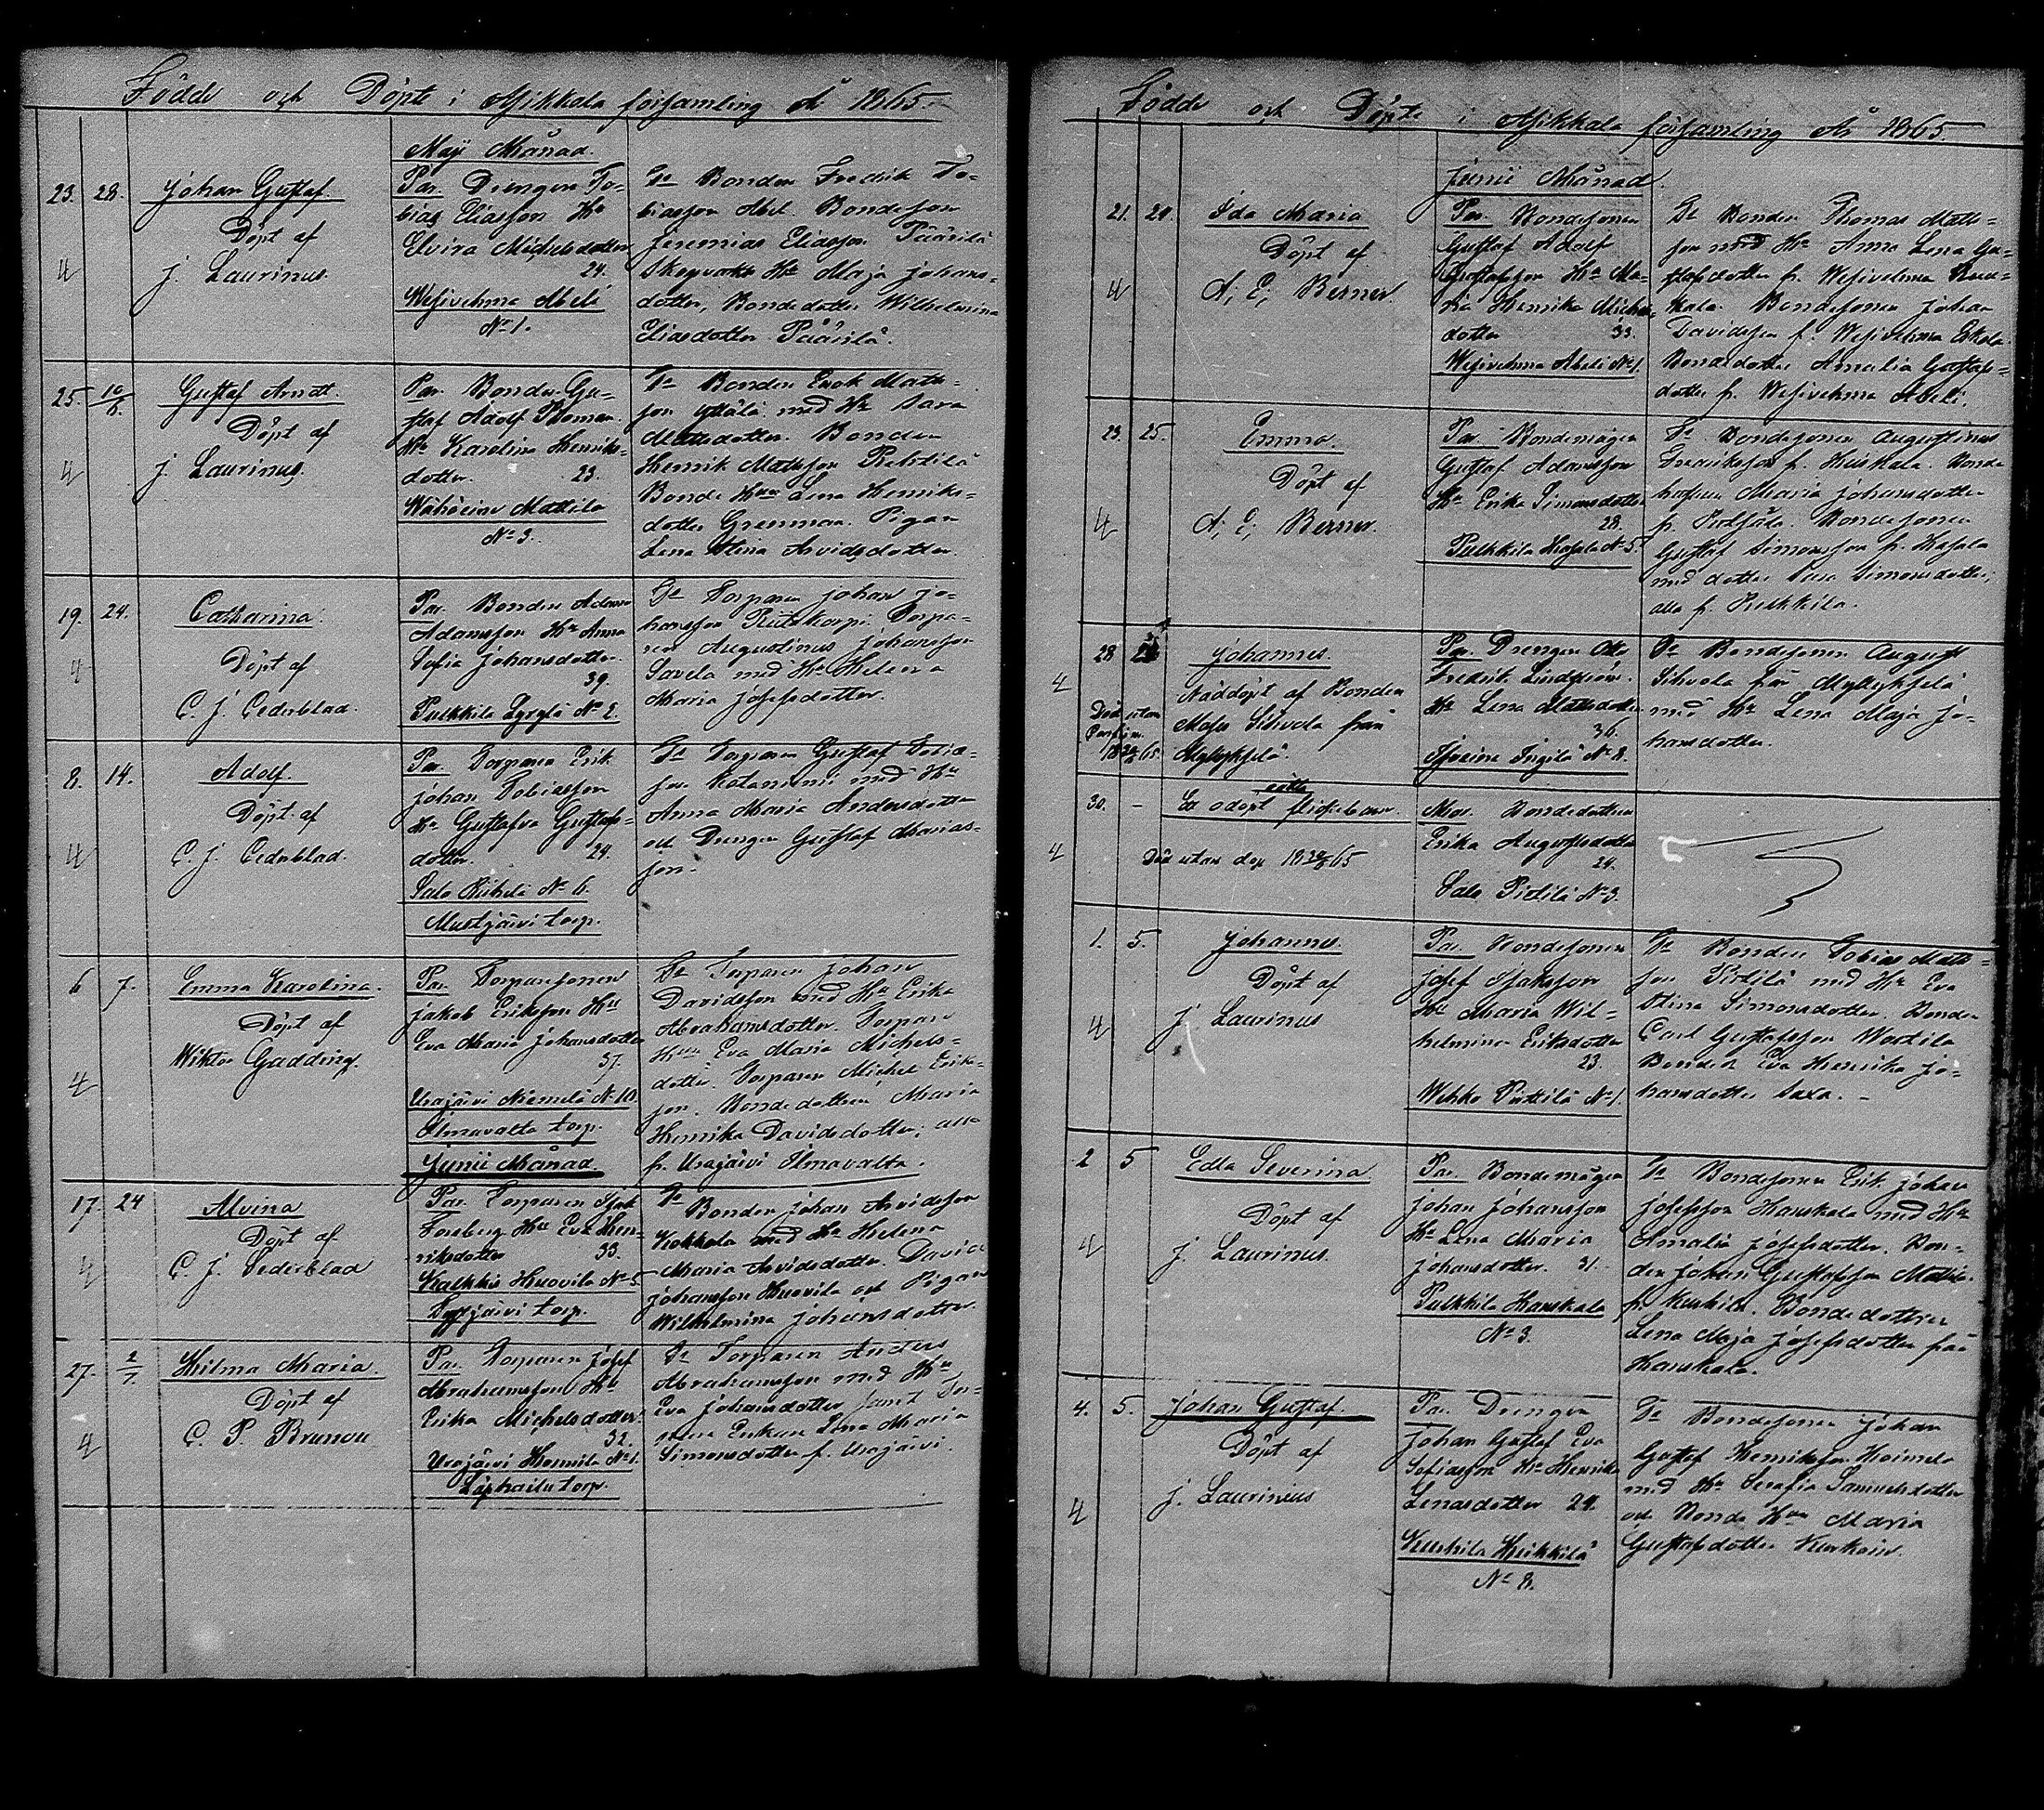 Födde och Döpte i Asikkala församling År 1865.
Maji Månad.
23. 28. Johan Gustaf.
Döpt af
J. Laurinus.
4
Par. Drengen To-
bias Eliasson Hu
Elvira Michelsdotter
24.
Wesivehma Abeli
No 1.
Fr Bonden Fredrik To-
biasson Abel. Bondeson
Jeremias Eliasson Päärilä
Hu Maja Johans-
dotter, Bondedotter Wilhelmina
Eliasdotter Päärilä.
25. 10/6. Gustaf Arndt.
Döpt af
J. Laurinus.
4
Par. Bonden Gu-
staf Adolf Thoman.
Hu Karolina Henriks-
dotter. 23.
Wähöeine Mattila
No 3.
Fr Bonden Erik Mats-
son Yttälä med Hu Sara
Mattsdotter. Bonden
Henrik Matsson
Bonde Hun Lena Henriks-
dotter Grenman. Pigan
Lena Stina Arvidsdotter.
19. 24. Catharina.
Döpt af
C. J. Cederblad.
4
Par. Bonden Adam
Adamsson Hu Anna
Sofia Johansdotter.
39.
Pulkkila Zyrylä No 2.
Fr Torparen Johan Jo-
hansson Torpa-
ren Augustinus Johansson
Savela med Hu Helena
Maria Josefsdotter.
8. 14. Adolf.
Döpt af
C. J. Cederblad.
4
Par. Torparen Erik
Johan Tobiasson
Hu Gustafva Gustafs-
dotter. 24.
Salo No 6.
Mustjärvi torp.
Fr Torparen Gustaf Tobias-
son Kotaniemi med Hu
Anna Maria Andersdotter
och Drengen Gustaf Marias-
son.
6 7. Emma Karolina.
Döpt af
Wiktor Gadding.
4
Par. Torparesonen
Jakob Eriksson Hu
Eva Maria Johansdotter
37.
Urajärvi Niemelä No 10.
Ilmavalta torp.
Fr Torparen Johan
Davidsson med Hu Erika
Abrahamsdotter. Torpare
Hun Eva Maria Michels-
dotter. Torparen Michel Eriks-
son. Bondedottren Maria
Henrika Davidsdotter; alla
fr. Urajärvi Ilmavalta.
Junii Månad.
17. 24 Alvina
Döpt af
C. J. Cederblad
4
Par. Torparen Isak
Forsberg Hu Eva Hen-
riksdotter 33.
Kalkkis Huovila No 5.
torp.
Fr Bonden Johan Arvidsson
Kokkola med Hu Helena
Maria Arvidsdotter. David
Johansson Huovila och Pigan
Wilhelmina Johansdotter.
27. 2/7. Hilma Maria.
Döpt af
C. P. Brunou
4
Par. Torparen Josef
Abrahamsson Hu
Erika Michelsdotter.
32.
Urajärvi Hermilä No 1.
torp.
Fr Torparen Anders
Abrahamsson med Hu
Eva Johansdotter samt Tor-
pare Enkan Lena Maria
Simonsdotter f. Urajärvi.
Födde och Döpte i Asikkala församling År 1865.
Junii Månad.
21. 24. Ida Maria
Döpt af
A; E; Berner.
4
Par. Bondesonen
Gustaf Adolf
Gustafsson Hu Ma-
ria Henrika Michels-
dotter 33.
Wesivehma Abeli No 1.
Fr Bonden Thomas Matts-
son med Hu Anna Lena Gu-
stafsdotter fr. Wesivehma
Bondesonen Johan
Davidsson f. Wesivehma Eskola.
Bondedotter Amalia Gustafs-
dotter fr. Wesivehma Abeli.
23. 25. Emma.
Döpt af
A; E; Berner.
4
Par. Bondemågen
Gustaf Adamsson
Hu Erika Simonsdotter
28.
Pulkkila No 5.
Fr Bondesonen Augustinus
Fredriksson fr. Bonde
hustrun Maria Johansdotter
fr. Bondesonen
Gustaf Simonsson fr.
med dotter Simonsdotter;
alla fr. Pulkkila.
28 Johannes.
Nöddöpt af Bonden
Sihvola från
Myllykselä.
4
Par. Drengen Otto
Fredrik Lindström.
Hu Lena Mattsdotter
36.
No 8.
Fr Bondesonen August
Sihvola från Myllykselä
med Hu Lena Maja Jo-
hansdotter.
30. – Ett odöpt oäkta flickebarn.
Död utan dop 18 65
4
Mor. Bondedottren
Erika Augustsdotter
24.
Salo Pietilä No 3.
1. 5. Johannes.
Döpt af
J. Laurinus
4
Par. Bondesonen
Josef Isaksson
Hu Maria Wil-
helmina Eriksdotter
23.
Wehko Pirttilä No 1.
Fr Bonden Tobias Matts-
son Pirtilä med Hu Eva
Stina Simonsdotter. Bonden
Carl Gustafsson Wartila
Eva Henrika Jo-
hansdotter Saxa. –
2 5 Edla Severina
Döpt af
J. Laurinus.
4
Par. Bondemågen
Johan Johansson
Hu Lena Maria
Johansdotter. 31.
Pulkkila Hanskala
No 3.
Fr Bondesonen Erik Johan
Josefsson Hanskala med Hu
Amalia Josefsdotter. Bon-
den Johan Gustafsson
fr. Kurhila. Bondedottren
Lena Maja Josefsdotter från
Hanskala.
4. 5. Johan Gustaf.
Döpt af
J. Laurinus
4
Par. Drengen
Johan Gustaf Eva
Sofiasson Hu Henrika
Lenasdotter 24.
Kurhila Heikkilä
No 8.
Fr Bondesonen Johan
Gustaf Henriksson Heimelä
med Hu Serafia Samuelsdotter
och Bonde Hun Maria
Gustafsdotter